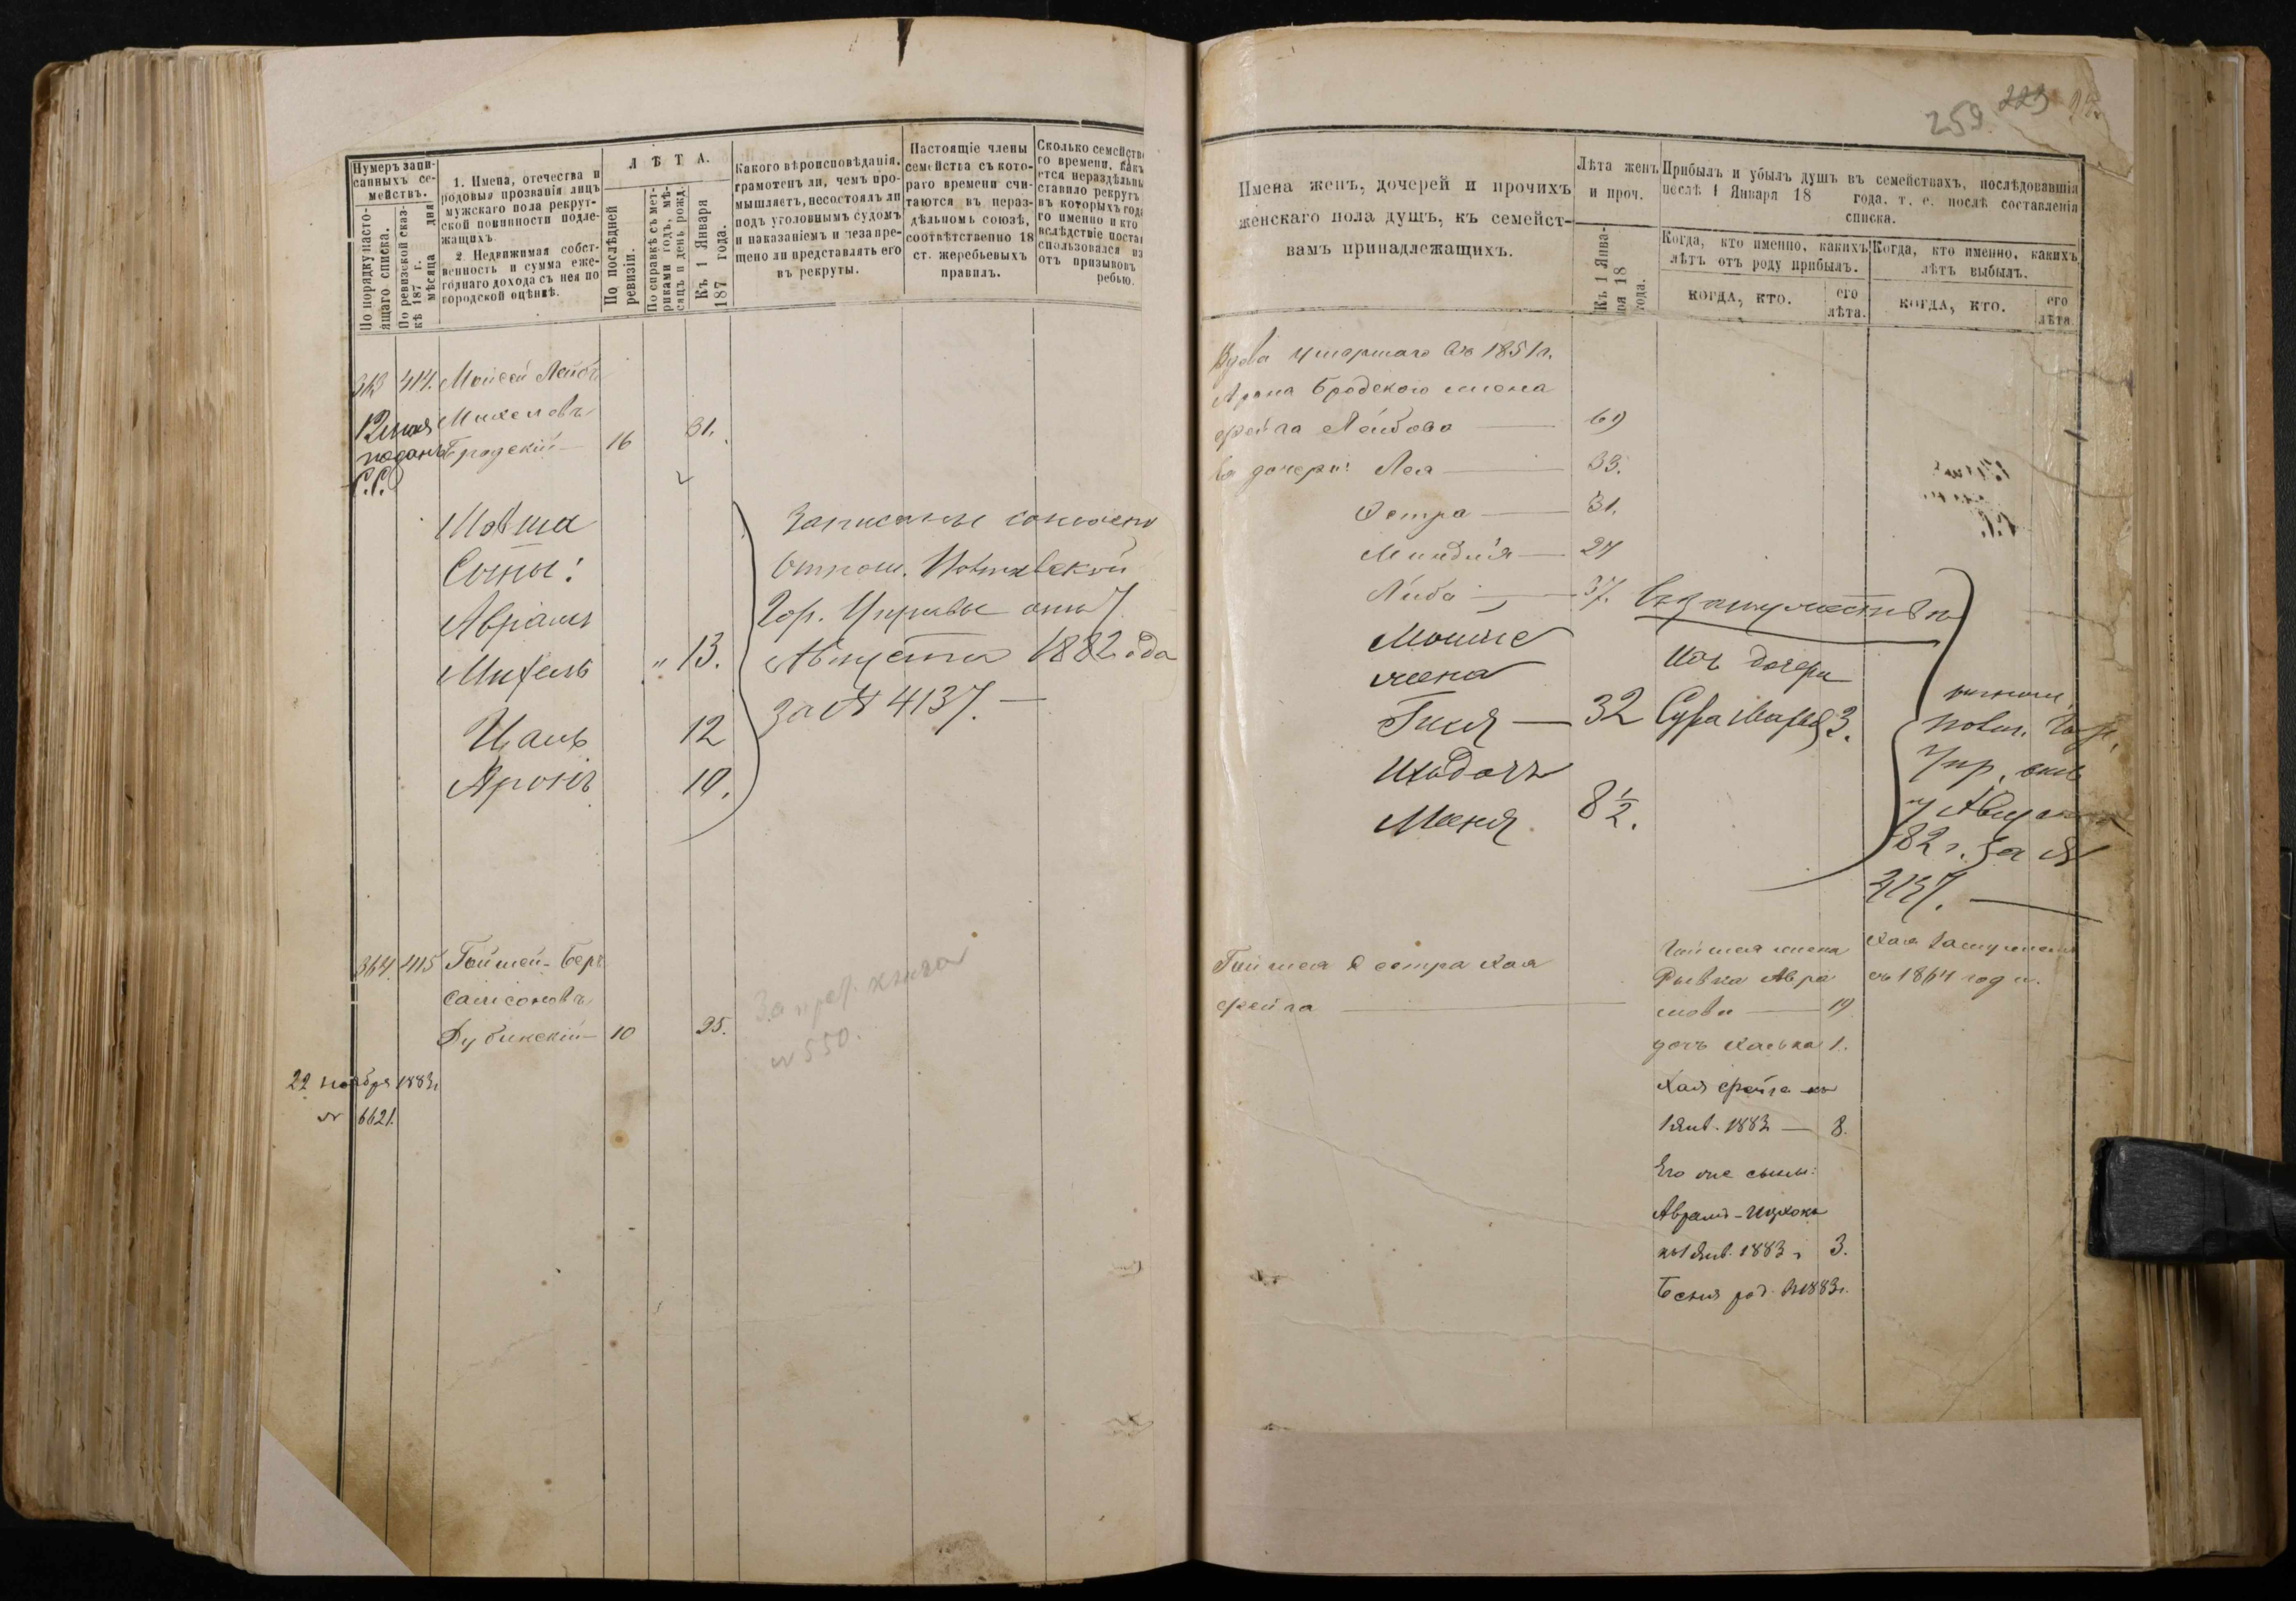 Нумеръ запи-
санныхъ се-
мействъ.
По порядку насто-
ящаго списка.
По ревизской сказ-
кѣ 187 г.
мѣсяца дня
1. Имена, отечества и
родовыя прозванія лицъ
мужскаго пола рекрут-
ской повинности подле-
жащихъ
2. Недвижимая собст-
венность и сумма еже-
годнаго дохода съ нея по
городской оцѣнкѣ.
ЛѢТА.
По послѣдней
ревизіи.
По справкѣ съ мет-
риками годъ, мѣ-
сяцъ и день рожд.
Къ 1 Января
187 года.
Какого вѣроисповѣданія,
грамотенъ ли, чемъ про-
мышляетъ, несостоялъ ли
подъ уголовнымъ судомъ
и наказаніемъ и незапре-
щено ли представлять его
въ рекруты.
Настоящіе члены
семейства съ кото-
раго времени счи-
таются въ нераз-
дѣльномъ союзѣ,
соотвѣтственно 18
ст. жеребьевыхъ
правилъ.
Сколько семейств
го времени, какъ
ется нераздѣльны
ставило рекрутъ
въ которыхъ год
го именно и кто
вслѣдствіе поста
спользовался
отъ призывовъ
ребью.
363 414. Мойсей Лейбъ
12 мая Михелевъ
поданъ Бродскій — 16 31.
С.С.
Мовша
Сыны:
Аврамъ
Михель " 13.
Цаль 12
Аронъ 10.
Записаны согласно
отнош. Новомосковской
Гор. Управы отъ 7
Августа 1882 года
за № 4137. —
364. 415 Гойшей-Беръ
Самсоновъ
Дубинскій — 10 25.
За прер. книга
№ 550.
22 ноября 1883 г
№ 6621.
259 223
Имена женъ, дочерей и прочихъ
женскаго пола душъ, къ семейст-
вамъ принадлежащихъ.
Лѣта женъ
и проч.
Къ 1 Янва-
ря 18
года.
Прибыль и убыль душъ въ семействахъ, послѣдовавшія
послѣ 1 Января 18 года, т. е. послѣ составленія
списка.
Когда, кто именно, какихъ
лѣтъ отъ роду прибылъ.
Когда, кто именно, какихъ
лѣтъ выбылъ.
КОГДА, КТО.
его
лѣта.
КОГДА, КТО.
его
лѣта.
Вдова умершаго въ 1851 г.
Арона Бродского жена
Фейга Лейбова — 69
Ея дочери: Лея — 33.
Эстра — 31.
Миндля — 27
Либа — 37. въ замужествѣ
Мовше
жена
Гися — 32
Ихъ дочь
Маня. 8 ½.
Ихъ дочери
Сура Марья 3.
Новом. Гор.
Упр. отъ
7 Августа
82 г. за №
4137. —
Гойшея 2 сестра Хая
Фейга —
Гойшея жена
Рывка Авра
мова — 19
дочь Хаська 1.
Хая Фейга къ
1 Янв. 1883 — 8.
Его же сыны:
Аврамъ-Ицхокъ
къ 1 Янв. 1883 г 3.
Бсеня род. въ 1883 г.
Хая замужемъ
съ 1864 года.